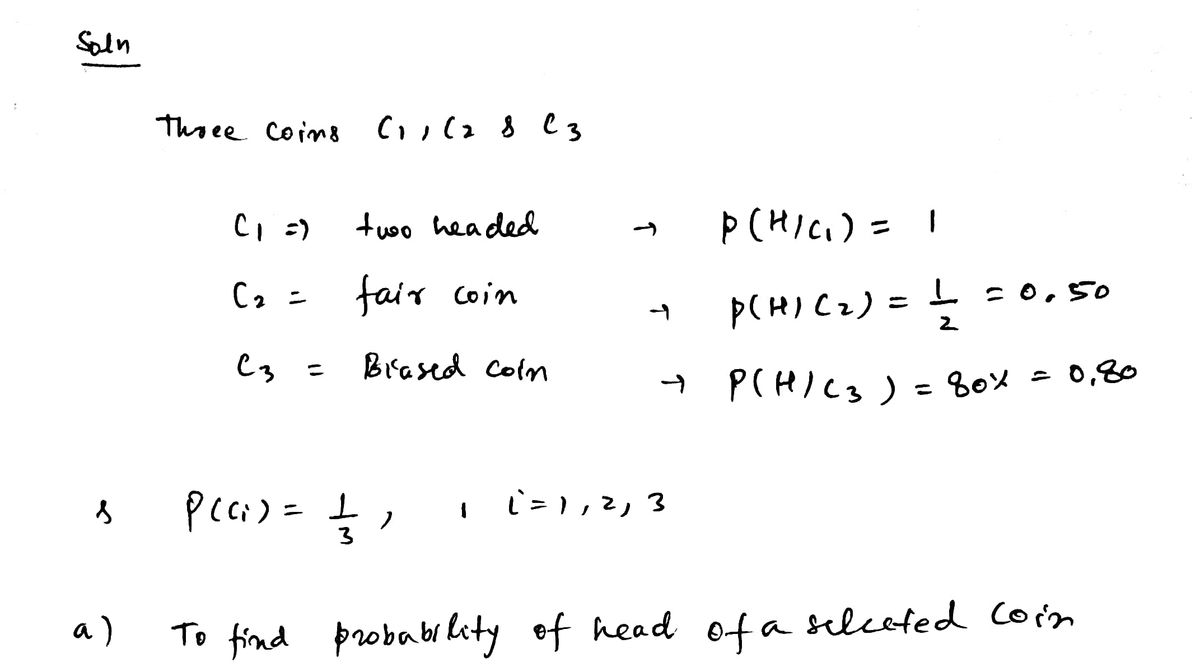 Soln
Three coins C1, C2 & C3
C1 => two headed → P(H/C1) = 1
C2 = fair coin → P(H/C2) = 1/2 = 0.50
C3 = Biased coin → P(H/C3) = 80% = 0.80
& P(Ci) = 1/3, , i = 1, 2, 3
a) To find probability of head of a selected coin